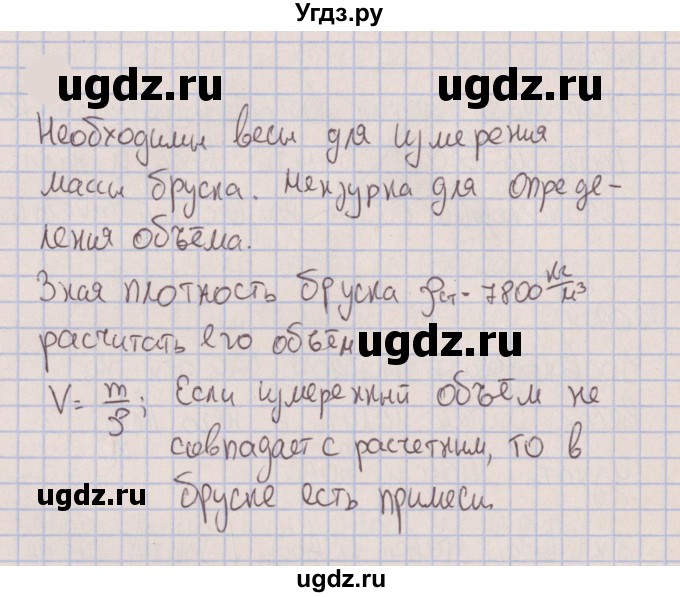 Угдз.ру
ugdz.ru ugdz.ru
Необходимы весы для измерения
массы бруска. Мензурка для опреде-
ления объёма.
Зная плотность бруска ρст - 7800 кг/м³
расчитать его объём ugdz.ru
V = m/ρ; Если измеренный объём не
совпадает с расчетным, то в
ugdz.ru бруске есть примеси.
ugdz.ru